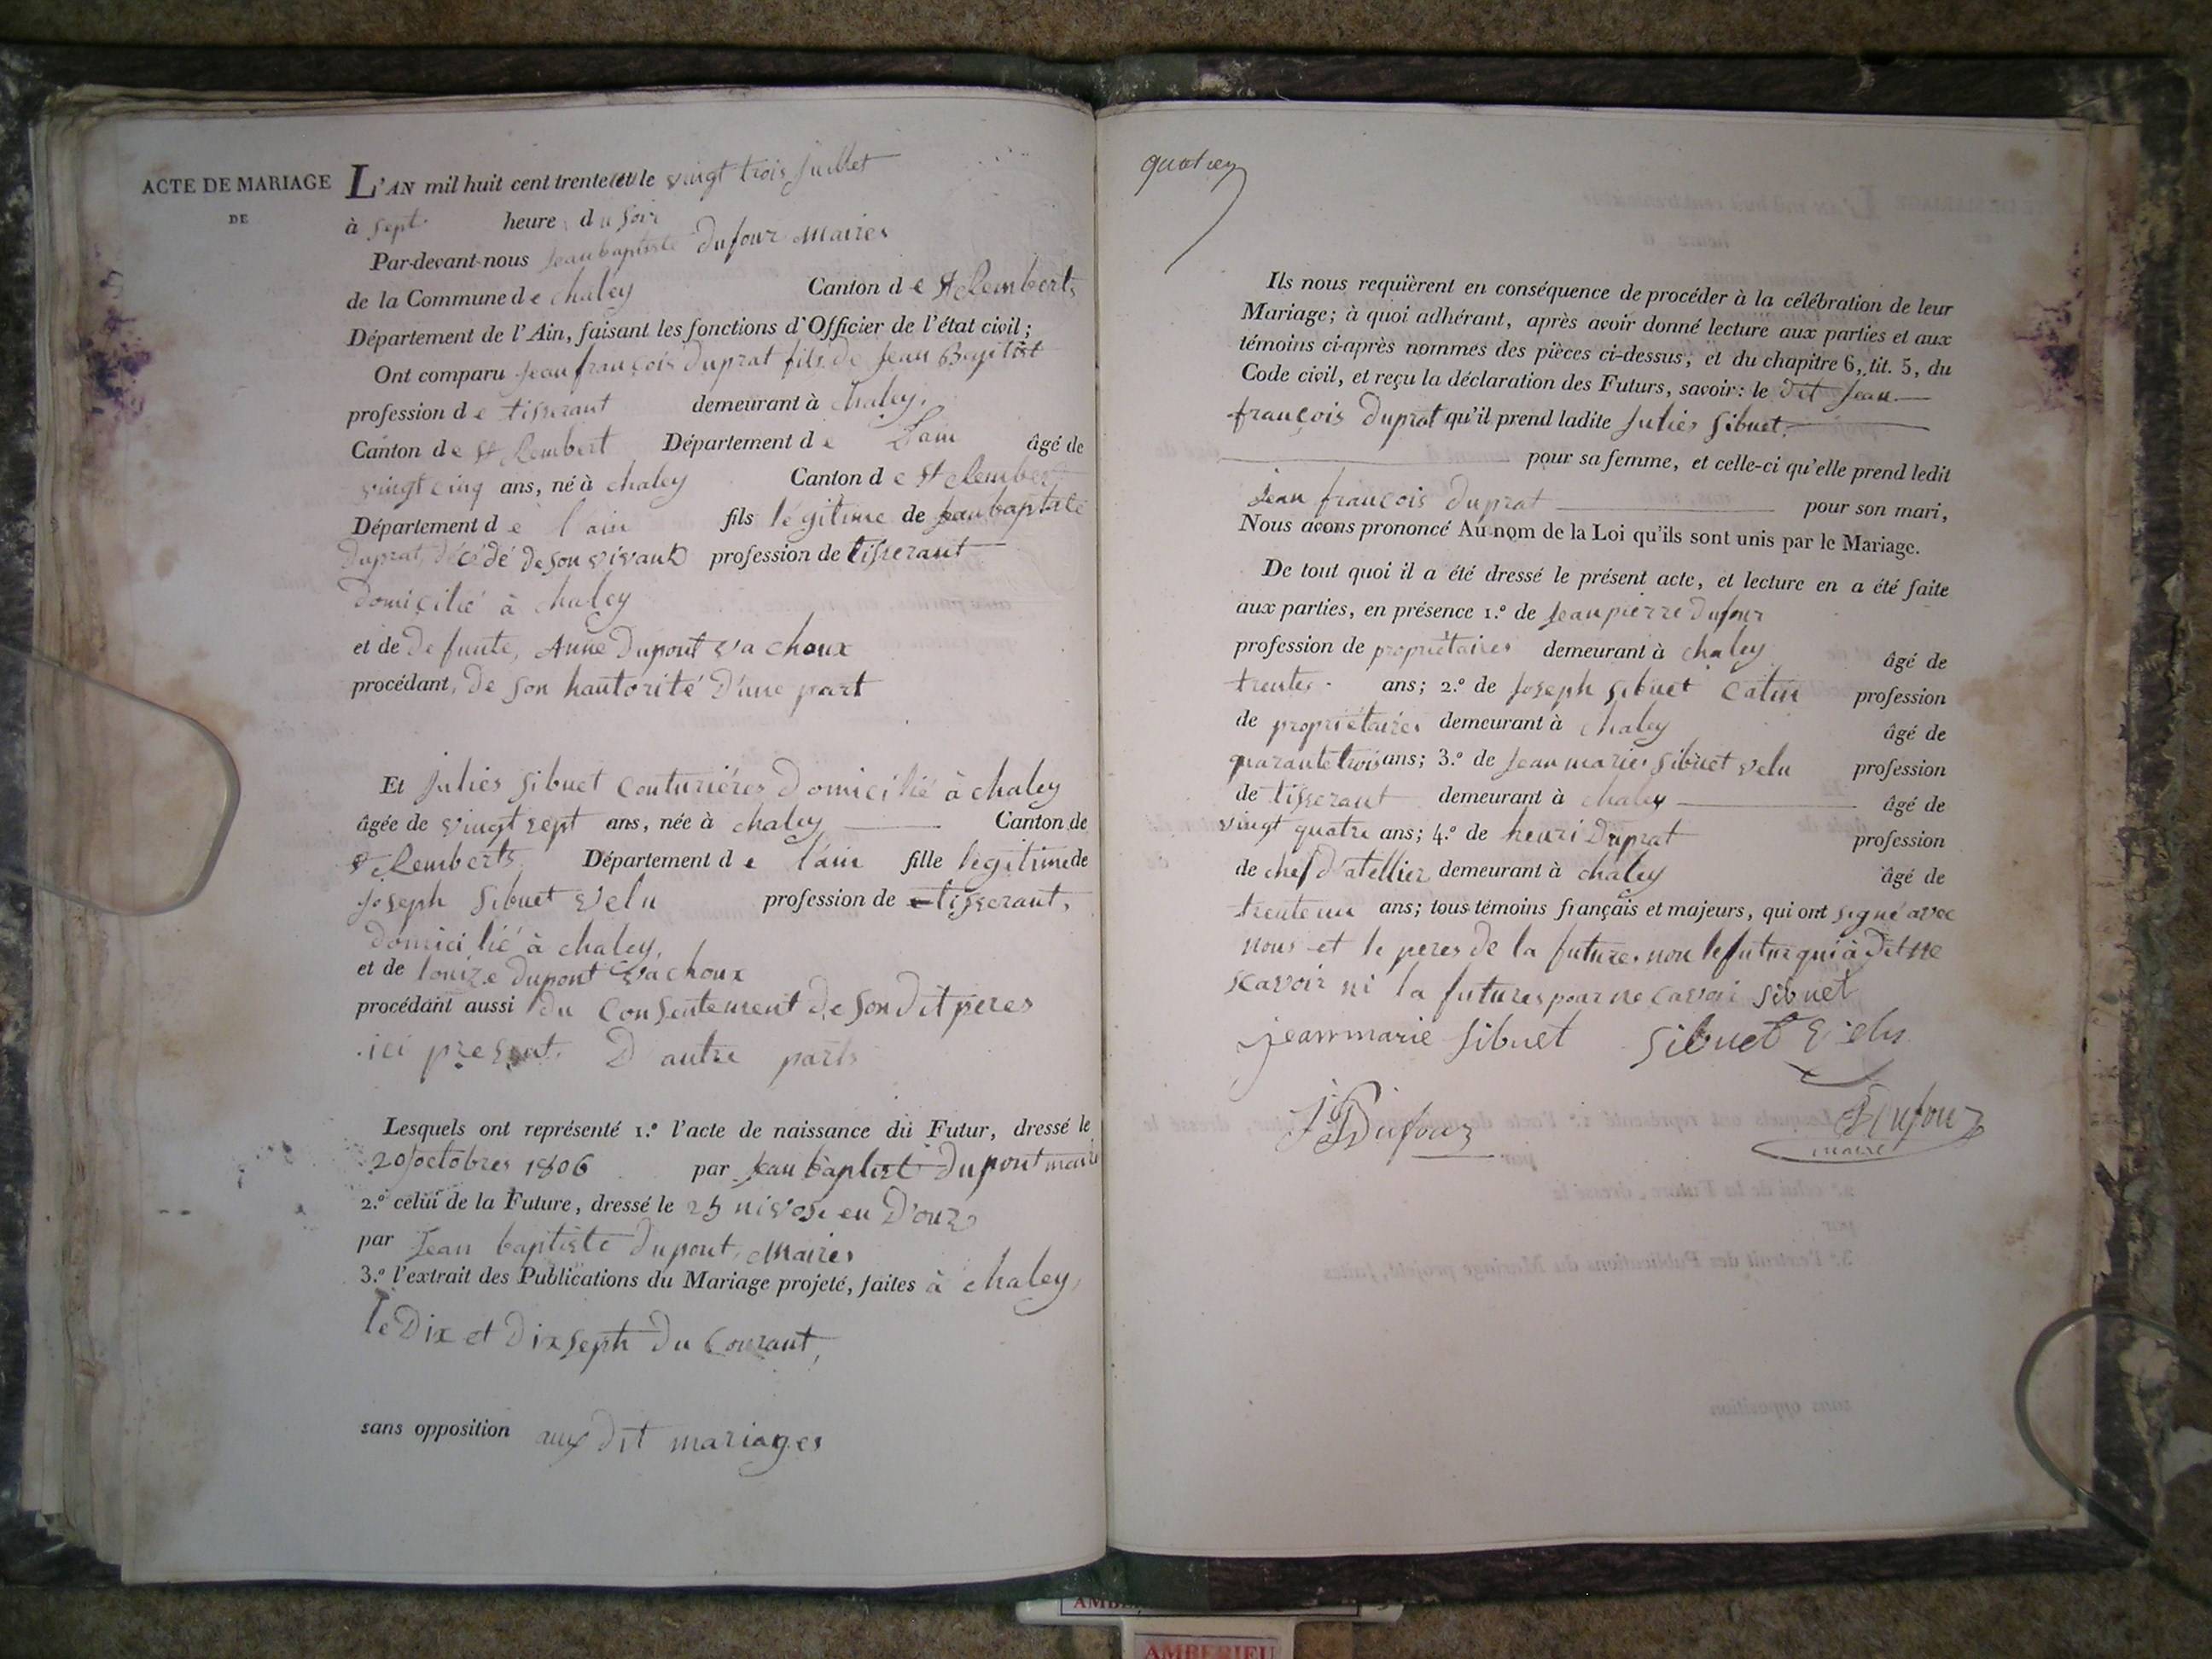 ACTE DE MARIAGE
DE
L'AN mil huit cent trente et un le vingt trois Juillet
à sept heure du soir
Par-devant-nous jean baptiste Dufour Maires
de la Commune de chaley Canton de St Remberts
Département de l'Ain, faisant les fonctions d'Officier de l'état civil;
Ont comparu jean françois Duprat fils de Jean Baptist
profession de tisserant demeurant à Chaley,
Canton de St Rembert Département de Lain âgé de
vingt cinq ans, né à chaley Canton de St Rembert
Département de l'ain fils légitime de jean baptiste
Duprat, décédé de son vivant profession de tisserant
Domicilié à chaley
et de Defunte, Anne Dupont Vachoux
procédant, de son hautorité D'une part
Et julies Sibuet Couturières Domicilié à chaley
âgée de vingt sept ans, née à chaley Canton de
St Remberts Département de l'ain fille légitime de
joseph Sibuet Velu profession de tisserant,
Domicilié à chaley,
et de louize Dupont Vachoux
procédant aussi du Consentement de son Dit peres
ici present. D autre parts
Lesquels ont représenté 1.º l'acte de naissance du Futur, dressé le
20 octobres 1806 par jean baptist Dupont maire
2.º celui de la Future, dressé le 25 nivose en D'onz
par Jean baptiste Dupont, Maires
3.º l'extrait des Publications du Mariage projeté, faites à chaley,
le Dix et Dix septh Du Courant,
sans opposition aux Dit mariages
quatres
Ils nous requièrent en conséquence de procéder à la célébration de leur
Mariage; à quoi adhérant, après avoir donné lecture aux parties et aux
témoins ci-après nommes des pièces ci-dessus, et du chapitre 6, tit. 5, du
Code civil, et reçu la déclaration des Futurs, savoir: le dit Jean
françois Duprat qu'il prend ladite Julies Sibuet.
pour sa femme, et celle-ci qu'elle prend ledit
jean françois Duprat pour son mari,
Nous avons prononcé Au nom de la Loi qu'ils sont unis par le Mariage.
De tout quoi il a été dressé le présent acte, et lecture en a été faite
aux parties, en présence 1.º de Jean pierre Dufour
profession de propriétaires demeurant à chaley âgé de
trentes ans; 2.º de Joseph Sibuet Catin profession
de propriétaires demeurant à chaley âgé de
quarante trois ans; 3.º de Jean maries Sibuet Velu profession
de tisserant demeurant à chaley âgé de
vingt quatre ans; 4.º de henri Duprat profession
de chef D'atellier demeurant à chaley âgé de
trente un ans; tous témoins français et majeurs, qui ont signé avec
nous et le peres de la future, non le futur qui à Dit ne
scavoir ni la futures pour ne cavoir Sibuet
jean marie Sibuet Sibuet Velu
JP Dufour Dufour
maire
AMBERIEU